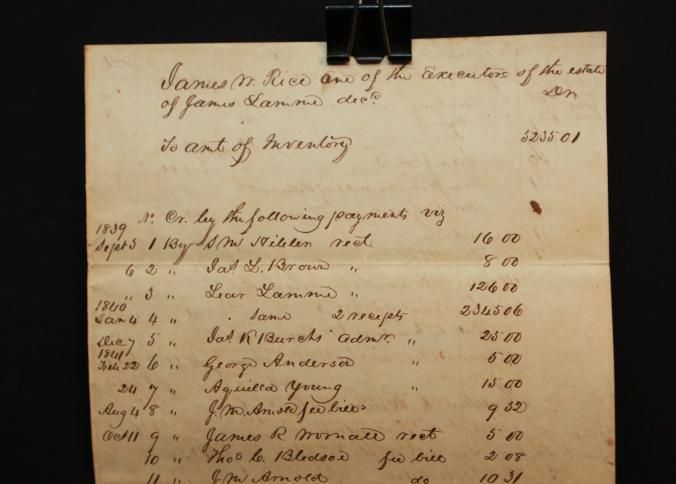 James W. Rice one of the Executors of the estate
of James Lamme decd. Dr
To amt of Inventory 5235 01
1839 No. Cr. by the following payments viz
Sept 3 1 By S M Hibler rect 16 00
6 2 " Jas L. Brown " 8 00
" 3 " Lear Lamme " 126 00
1840
Jan 4 4 " . same 2 recepts 2345 06
Dec 7 5 " Jas R Burchs admr. " 25 00
1841
Feb 22 6 " George Anderson " 5 00
24 7 " Aquilla Young " 15 00
Aug 4 8 " J. M. Arnold fee bills 9 32
Oct 11 9 " James R Wornall rect 5 00
10 " Thos C. Bledsoe fee bill 2 08
11 " J M Arnold do 10 31